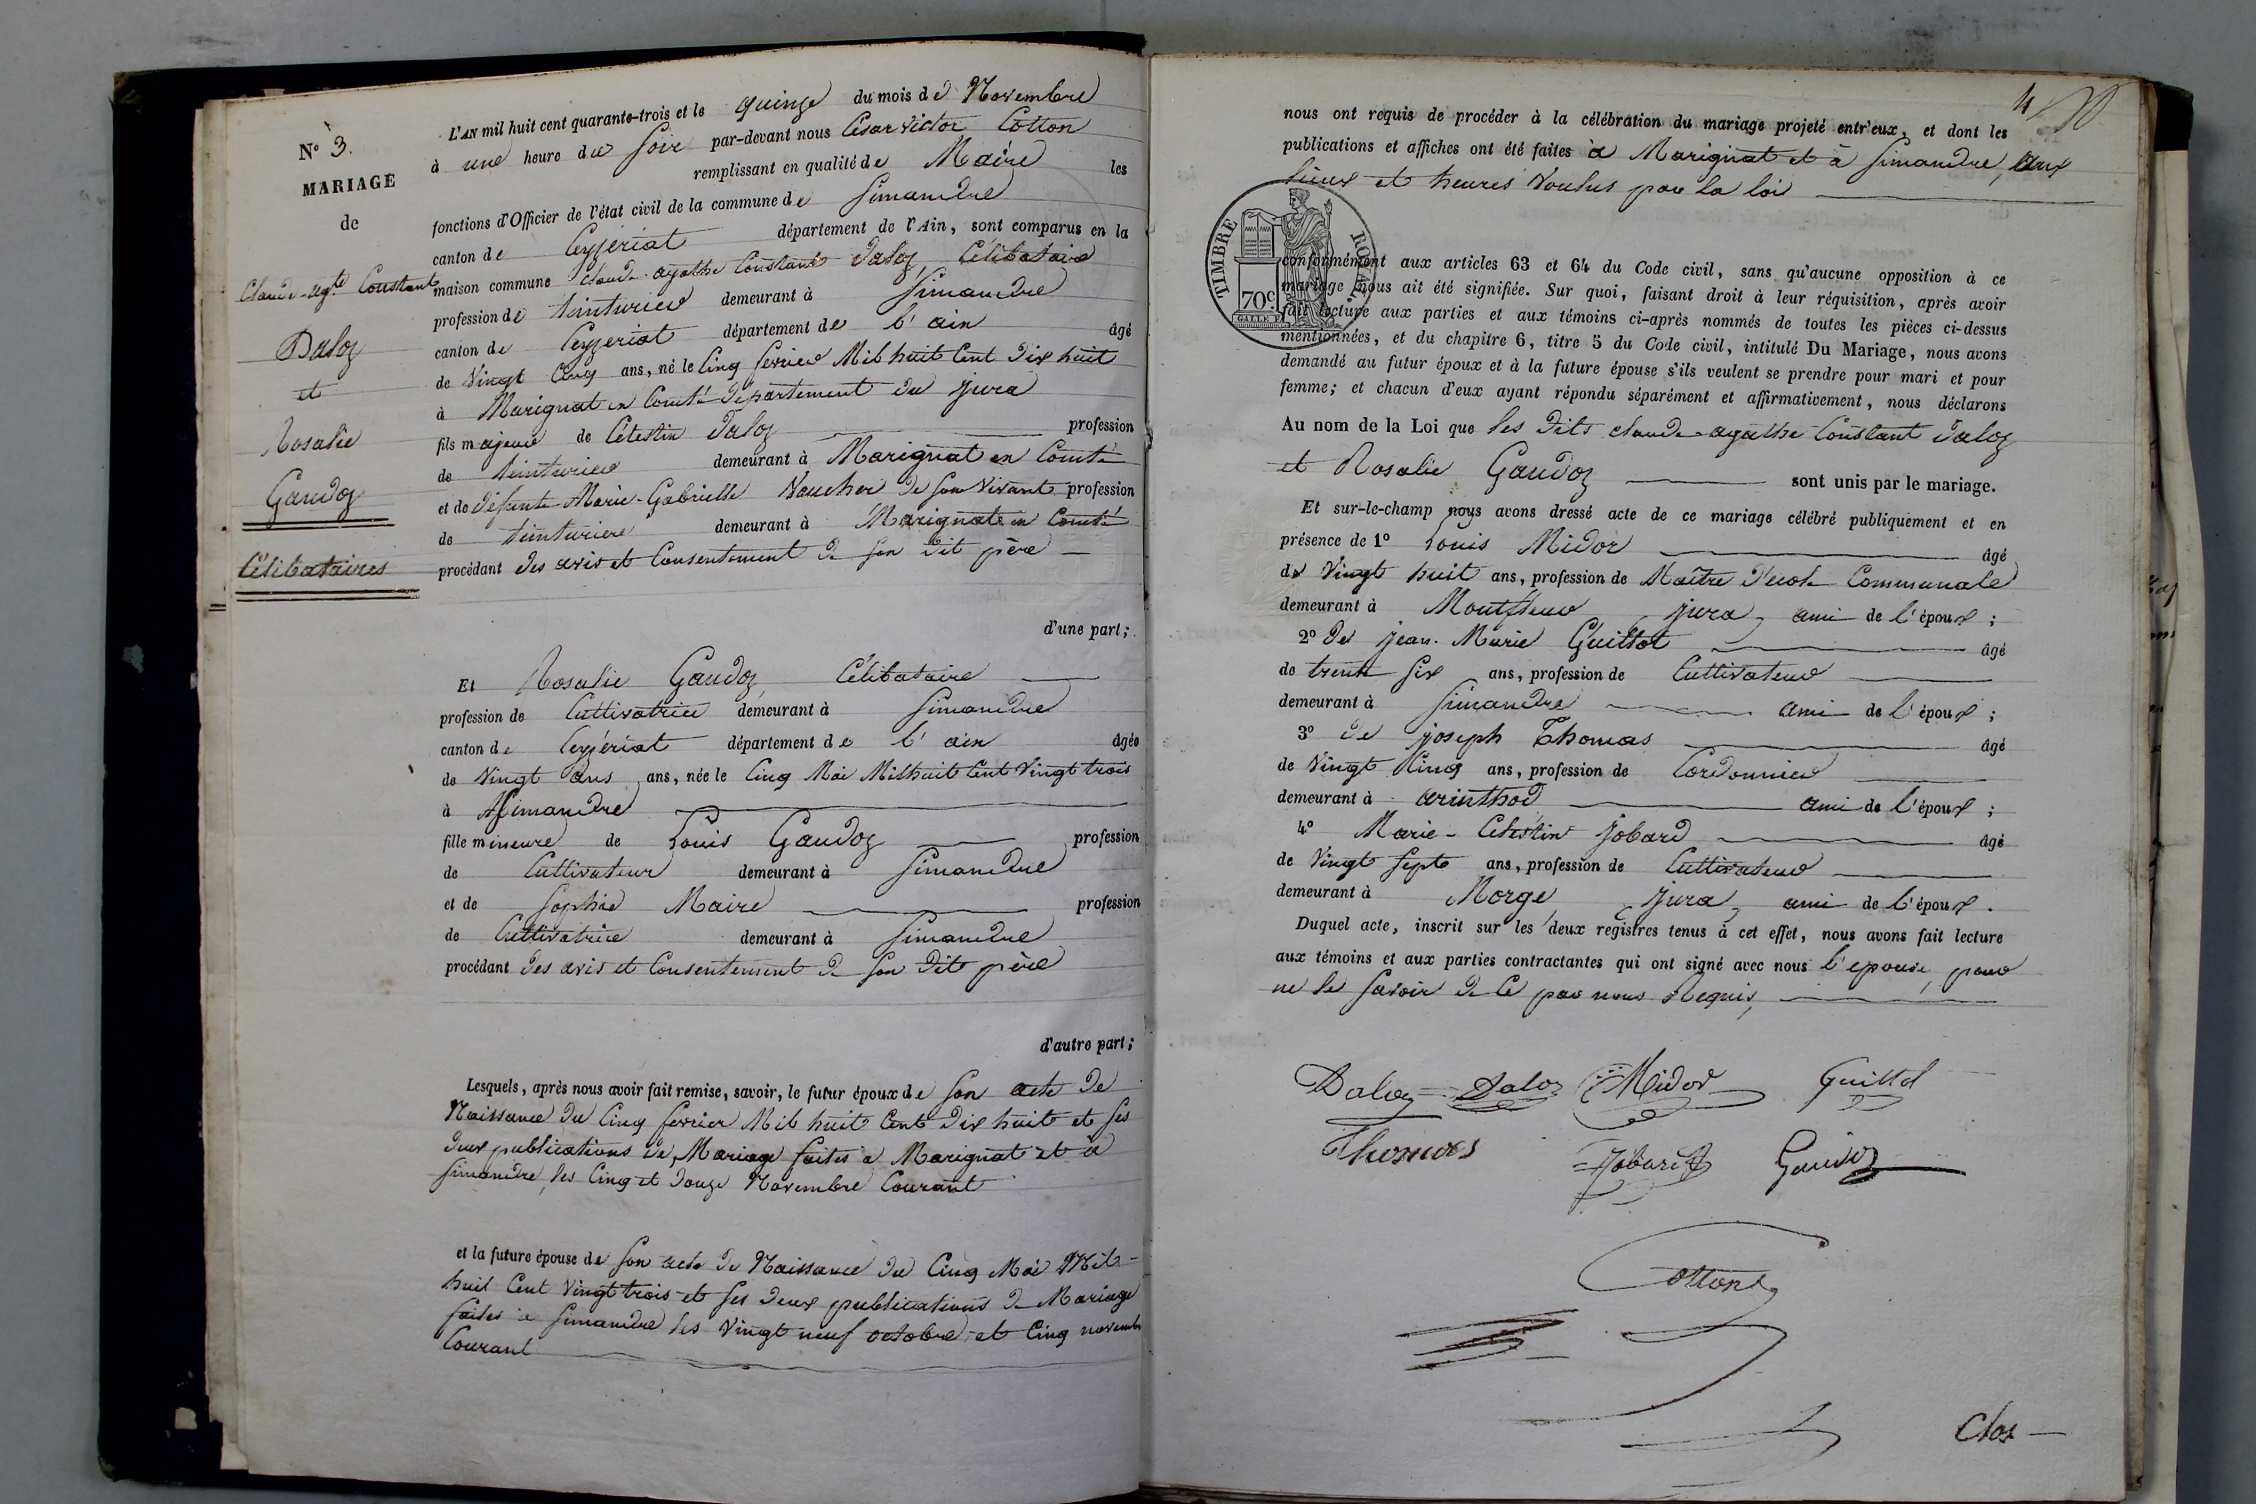 N° 3.
MARIAGE
de
Claude-Agte Constant
Daloz
et
Rosalie
Gaudoz
Célibataires
L'AN mil huit cent quarante-trois et le quinze du mois de Novembre
à une heure du Soir par-devant nous César Victor Cotton
remplissant en qualité de Maire les
fonctions d'Officier de l'état civil de la commune de Simandre
canton de Ceyzériat département de l'Ain, sont comparus en la
maison commune Claude-agathe Constant Daloz, Célibataire
profession de teinturier demeurant à Simandre
canton de Ceyzeriat département de l'ain âgé
de Vingt Cinq ans, né le Cinq fevrier Mil huit Cent Dix huit
à Marignat en Comté Département du jura
fils majeur de Célestin Daloz profession
de teinturier demeurant à Marignat en Comté
et de défunte Marie-Gabrielle Vaucher de son Vivant profession
de teinturiere demeurant à Marignat en Comté
procédant des avis et Consentement de son dit père
d'une part;
Et Rosalie Gaudoz, Célibataire
profession de Cultivatrice demeurant à Simandre
canton de Ceyzériat département de l'ain âgée
de Vingt ans ans, née le Cinq Mai Mil huit Cent Vingt trois
à Simandre
fille mineure de Louis Gaudoz profession
de Cultivateur demeurant à Simandre
et de Sophie Maire profession
de Cultivatrice demeurant à Simandre
procédant des avis et Consentement de son dit père
d'autre part;
Lesquels, après nous avoir fait remise, savoir, le futur époux de son acte de
Naissance du Cinq fevrier Mil huit Cent Dix huit et ses
deux publications de Mariage faites à Marignat et à
Simandre, les Cinq et douze Novembre Courant
et la future épouse de son acte de Naissance du Cinq Mai Mil
huit Cent Vingt trois et ses deux publications de Mariage
faites à Simandre les Vingt neuf octobre et Cinq novembre
Courant
4
nous ont requis de procéder à la célébration du mariage projeté entr'eux, et dont les
publications et affiches ont été faites à Marignat et à Simandre, aux
lieux et heures Voulus par la loi
TIMBRE ROYAL.
70c
conformément aux articles 63 et 64 du Code civil, sans qu'aucune opposition à ce
mariage nous ait été signifiée. Sur quoi, faisant droit à leur réquisition, après avoir
fait lecture aux parties et aux témoins ci-après nommés de toutes les pièces ci-dessus
mentionnées, et du chapitre 6, titre 5 du Code civil, intitulé Du Mariage, nous avons
demandé au futur époux et à la future épouse s'ils veulent se prendre pour mari et pour
femme; et chacun d'eux ayant répondu séparément et affirmativement, nous déclarons
Au nom de la Loi que les dits claude-agathe Constant Daloz
et Rosalie Gaudoz sont unis par le mariage.
Et sur-le-champ nous avons dressé acte de ce mariage célébré publiquement et en
présence de 1° Louis Midor âgé
de Vingt huit ans, profession de Maître d'école Communale
demeurant à Montfleur, jura, ami de l'époux;
2° de jean-Marie Guillot âgé
de trente six ans, profession de Cultivateur
demeurant à Simandre ami de l'époux;
3° de joseph Thomas âgé
de Vingt Cinq ans, profession de Cordonnier
demeurant à arinthod ami de l'époux;
4° Marie-Célestin jobard âgé
de Vingt sept ans, profession de Cultivateur
demeurant à Morge, jura, ami de l'époux.
Duquel acte, inscrit sur les deux registres tenus à cet effet, nous avons fait lecture
aux témoins et aux parties contractantes qui ont signé avec nous l'epouse, pour
ne le savoir de Ce par nous Requis,
Daloz Daloz Midor Guillot
Thomas Jobard Gaudoz
Cotton
Clos